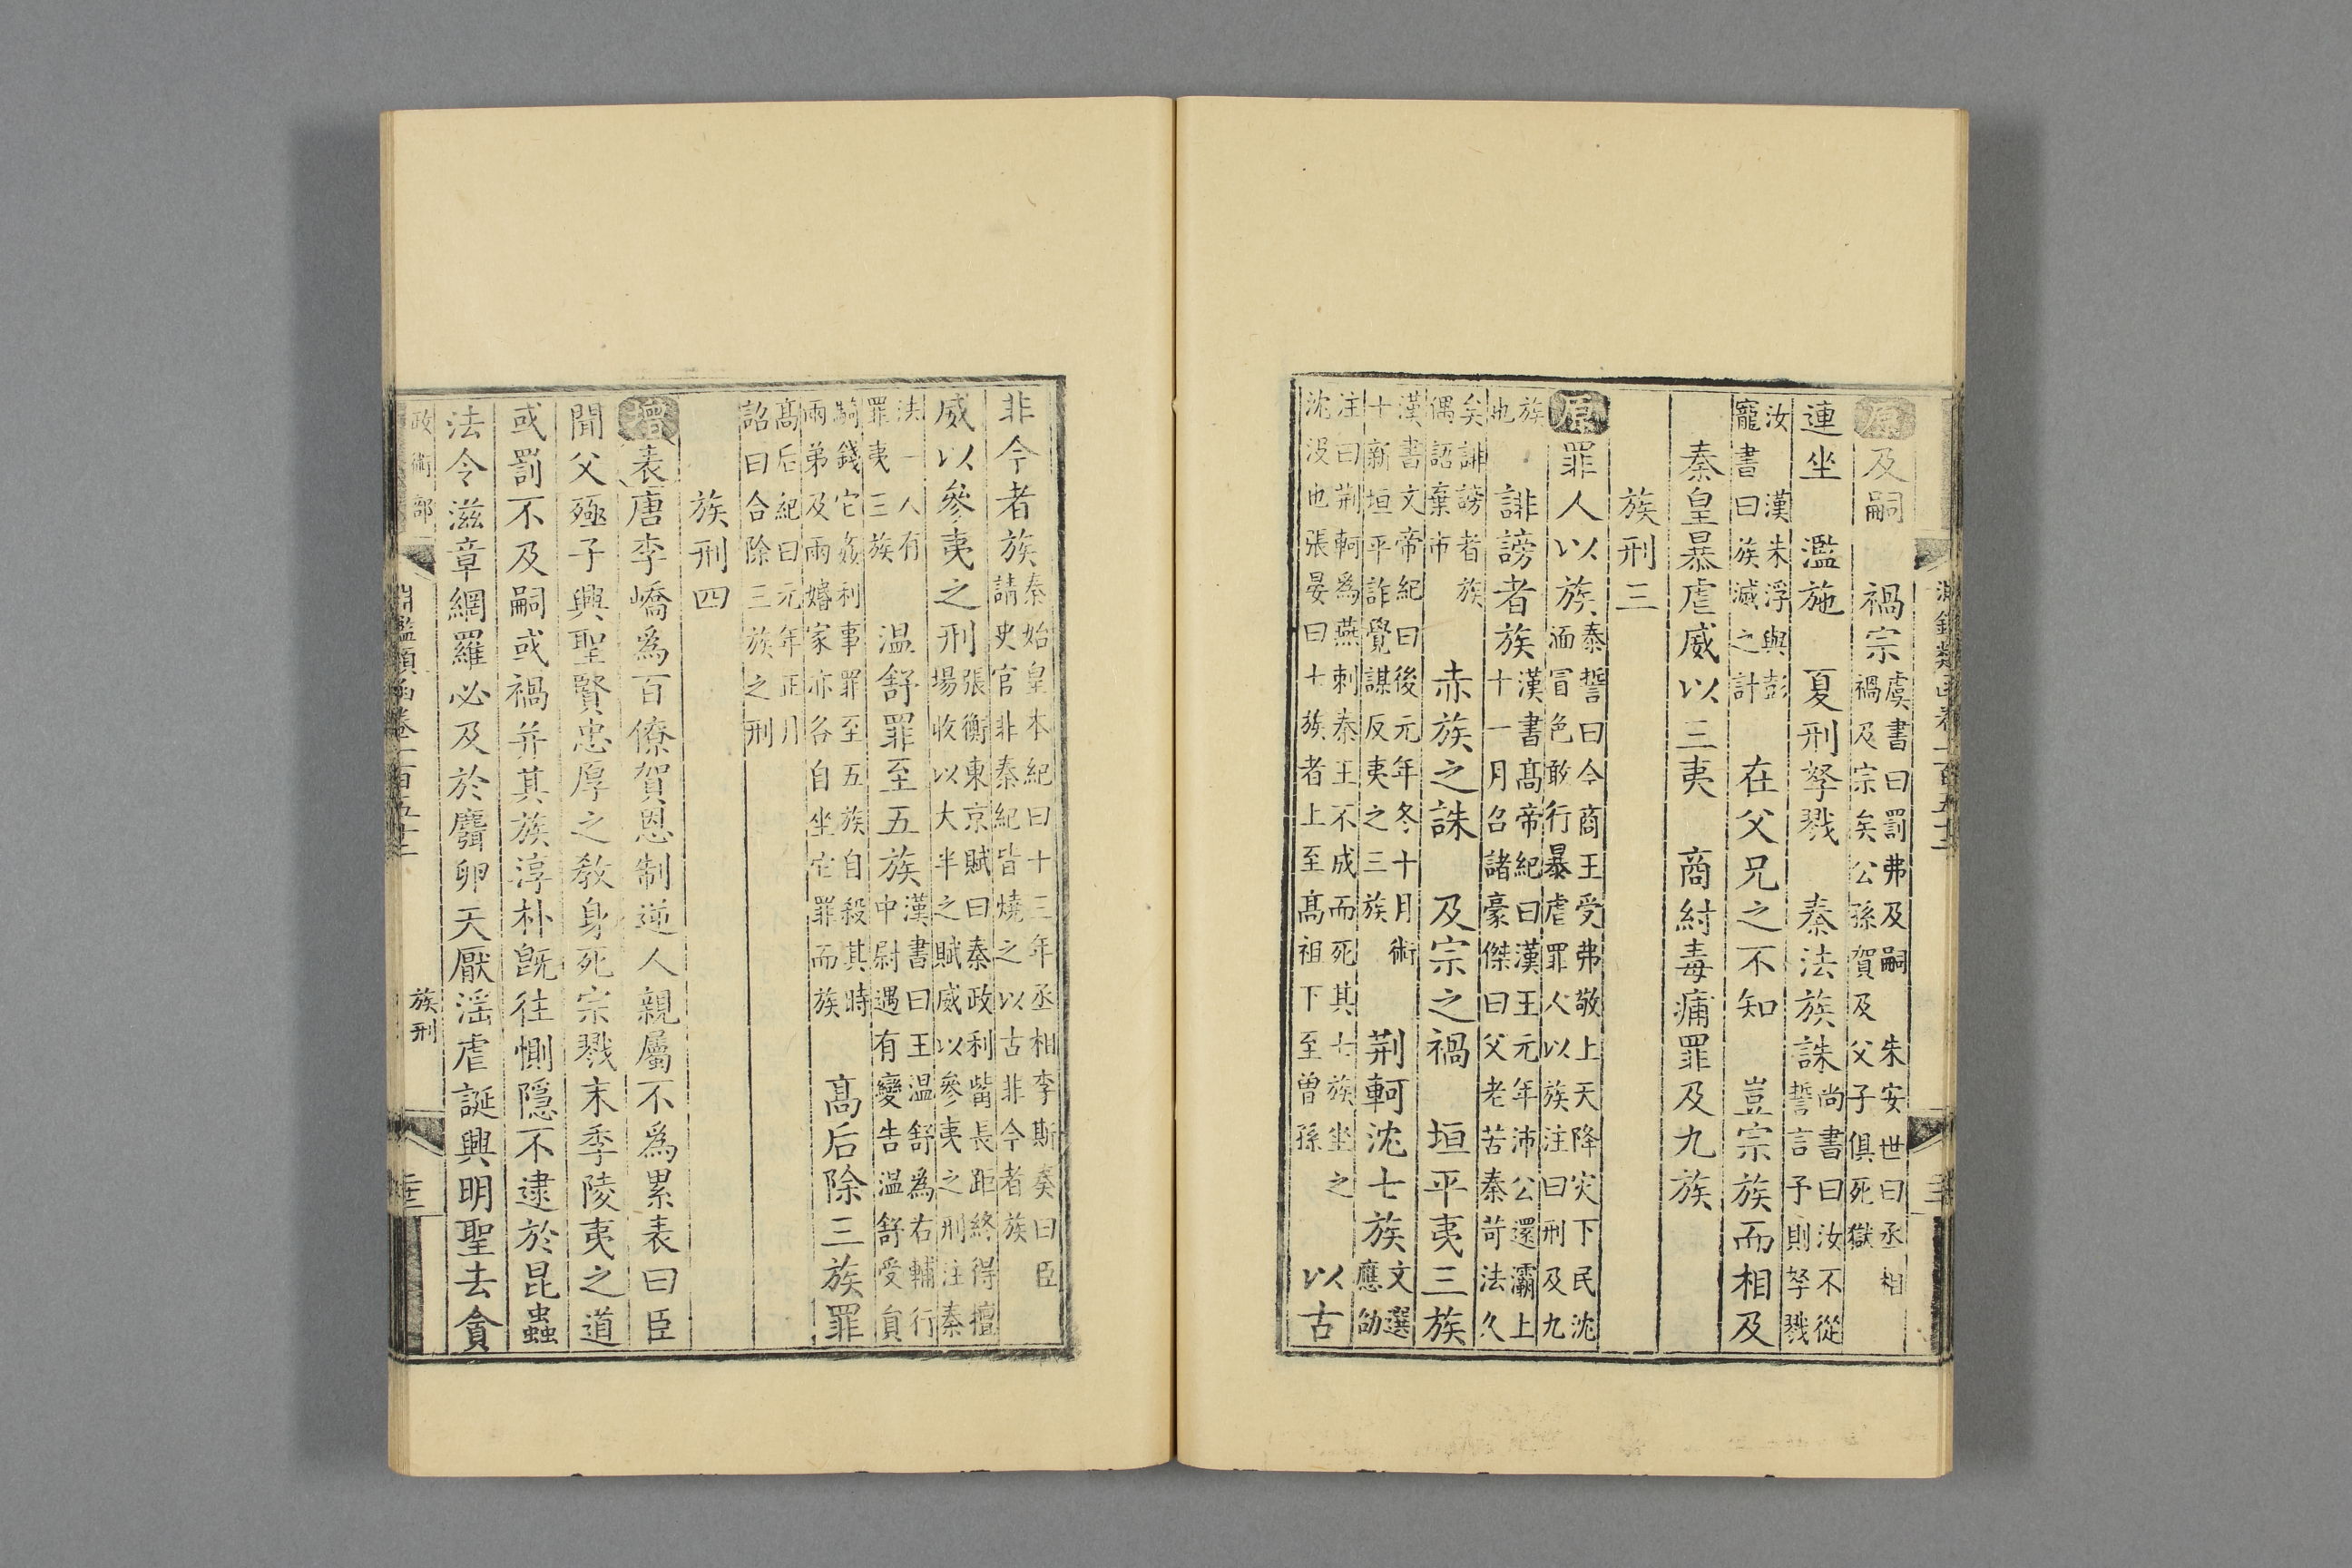 原及嗣 禍宗虞書曰罰弗及嗣 朱安世曰丞相禍及宗矣公孫賀及父子俱死獄
連坐 濫施 夏刑孥戮 秦法族誅尚書曰汝不從誓言予則孥戮
汝 漢朱浮與彭寵書曰族滅之計 在父兄之不知 豈宗族而相及
秦皇暴虐威以三夷 商紂毒痡罪及九族
族刑三
原罪人以族泰誓曰今商王受弗敬上天降灾下民沈湎冒色敢行暴虐罪人以族注曰刑及九
族也 誹謗者族漢書髙帝紀曰漢王元年沛公還灞上十一月召諸豪傑曰父老苦秦苛法久
矣誹謗者族偶語棄市 赤族之誅 及宗之禍 垣平夷三族
漢書文帝紀曰後元年冬十月術十新垣平詐覺謀反夷之三族 荆軻沈七族文選應劭
注曰荆軻爲燕刺秦王不成而死其七族坐之沈没也張晏曰七族者上至髙祖下至曽孫 以古
非今者族秦始皇本紀曰十三年丞相李斯奏曰臣請史官非秦紀皆燒之以古非今者族
威以參夷之刑張衡東京賦曰秦政利觜長距終得擅場收以大半之賦威以參夷之刑注秦
法一人有罪夷三族 温舒罪至五族漢書曰王温舒為右輔行中尉遇有變告温舒受員
騎錢它姦利事罪至五族自殺其時兩弟及兩婚家亦各自坐它罪而族 髙后除三族罪
髙后紀曰元年正月詔曰合除三族之刑
族刑四
增表唐李嶠爲百僚賀恩制逆人親屬不爲累表曰臣
聞父殛子興聖賢忠厚之敎身死宗戮末季陵夷之道
或罰不及嗣或禍并其族淳朴旣往惻隱不逮於昆蟲
法令滋章網羅必及於麛卵天厭淫虐誕興明聖去貪
政術部 淵鑑類函卷一百五十二 族刑